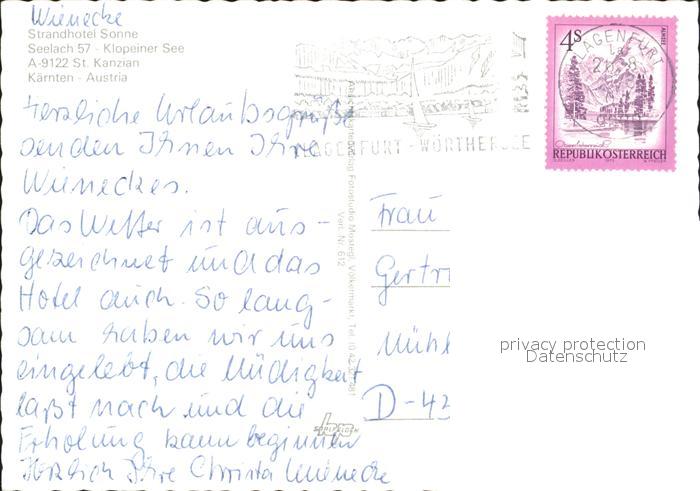 Wienecke
Strandhotel Sonne
Seelach 57 - Klopeiner See
A-9122 St. Kanzian
Kärnten - Austria
Herzliche Urlaubsgrüße
senden Ihnen Ihre
Wieneckes.
Das Wetter ist aus-
gezeichnet und das
Hotel auch. So lang-
sam haben wir uns
eingelebt, die Müdigkeit
läßt nach und die
Erholung kann beginnen
Herzlich Ihre Christa Wienecke
KLAGENFURT - WÖRTHERSEE
Fotostudio Mostegl, Völkermarkt, Tel. (0 42 32)
Verl. Nr. 612
4S
ALMSEE
KLAGENFURT
Oberösterreich
REPUBLIK ÖSTERREICH
Frau
Gertr
Mühl
D-43
privacy protection
Datenschutz